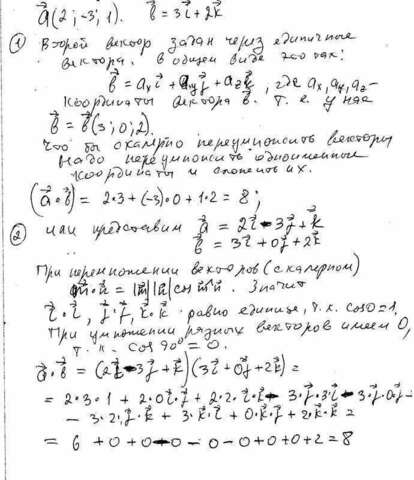 a⃗(2; -3; 1). b⃗ = 3i⃗ + 2k⃗
① Второй вектор задан через единичные
вектора. в общем виде это так:
b⃗ = aₓi⃗ + aᵧj⃗ + a_z k⃗, где aₓ, aᵧ, a_z -
координаты вектора b⃗. т. е. у нас
b⃗ = b⃗(3; 0; 2).
Что бы скалярно переумножить векторы
надо переумножить одноименные
координаты и сложить их.
(a⃗·b⃗) = 2·3 + (-3)·0 + 1·2 = 8;
② или представим a⃗ = 2i⃗ - 3j⃗ + k⃗
b⃗ = 3i⃗ + 0j⃗ + 2k⃗
При перемножении векторов (скалярном)
m⃗·n⃗ = |m⃗||n⃗| cos m⃗n⃗. Значит
i⃗·i⃗, j⃗·j⃗, k⃗·k⃗ равно единице, т.к. cos0=1.
При умножении разных векторов имеем 0,
т. к. cos 90° = 0.
a⃗·b⃗ = (2i⃗ - 3j⃗ + k⃗)(3i⃗ + 0j⃗ + 2k⃗) =
= 2·3·1 + 2·0i⃗·j⃗ + 2·2·i⃗·k⃗ - 3·j⃗·3i⃗ - 3·j⃗·0j⃗ -
- 3·2·j⃗·k⃗ + 3·k⃗·i⃗ + 0·k⃗·j⃗ + 2·k⃗·k⃗ =
= 6 + 0 + 0 - 0 - 0 - 0 + 0 + 0 + 2 = 8